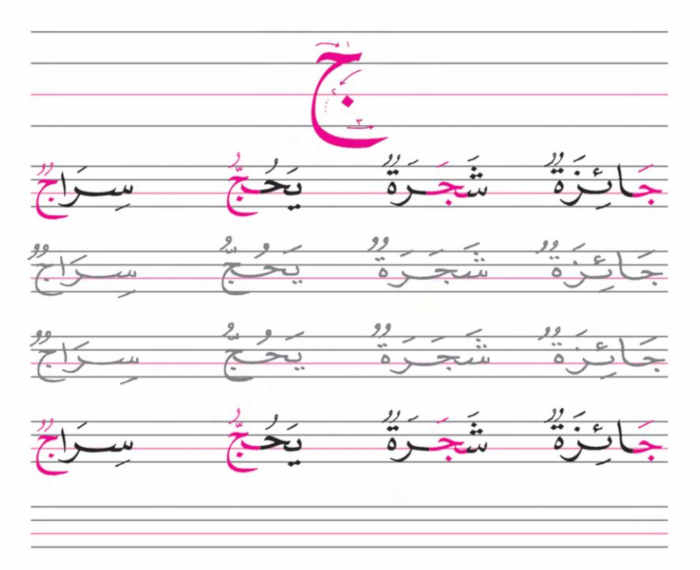 ج
جَائِزَةٌ شَجَرَةٌ يَحُجُّ سِرَاجٌ
جَائِزَةٌ شَجَرَةٌ يَحُجُّ سِرَاجٌ
جَائِزَةٌ شَجَرَةٌ يَحُجُّ سِرَاجٌ
جَائِزَةٌ شَجَرَةٌ يَحُجُّ سِرَاجٌ